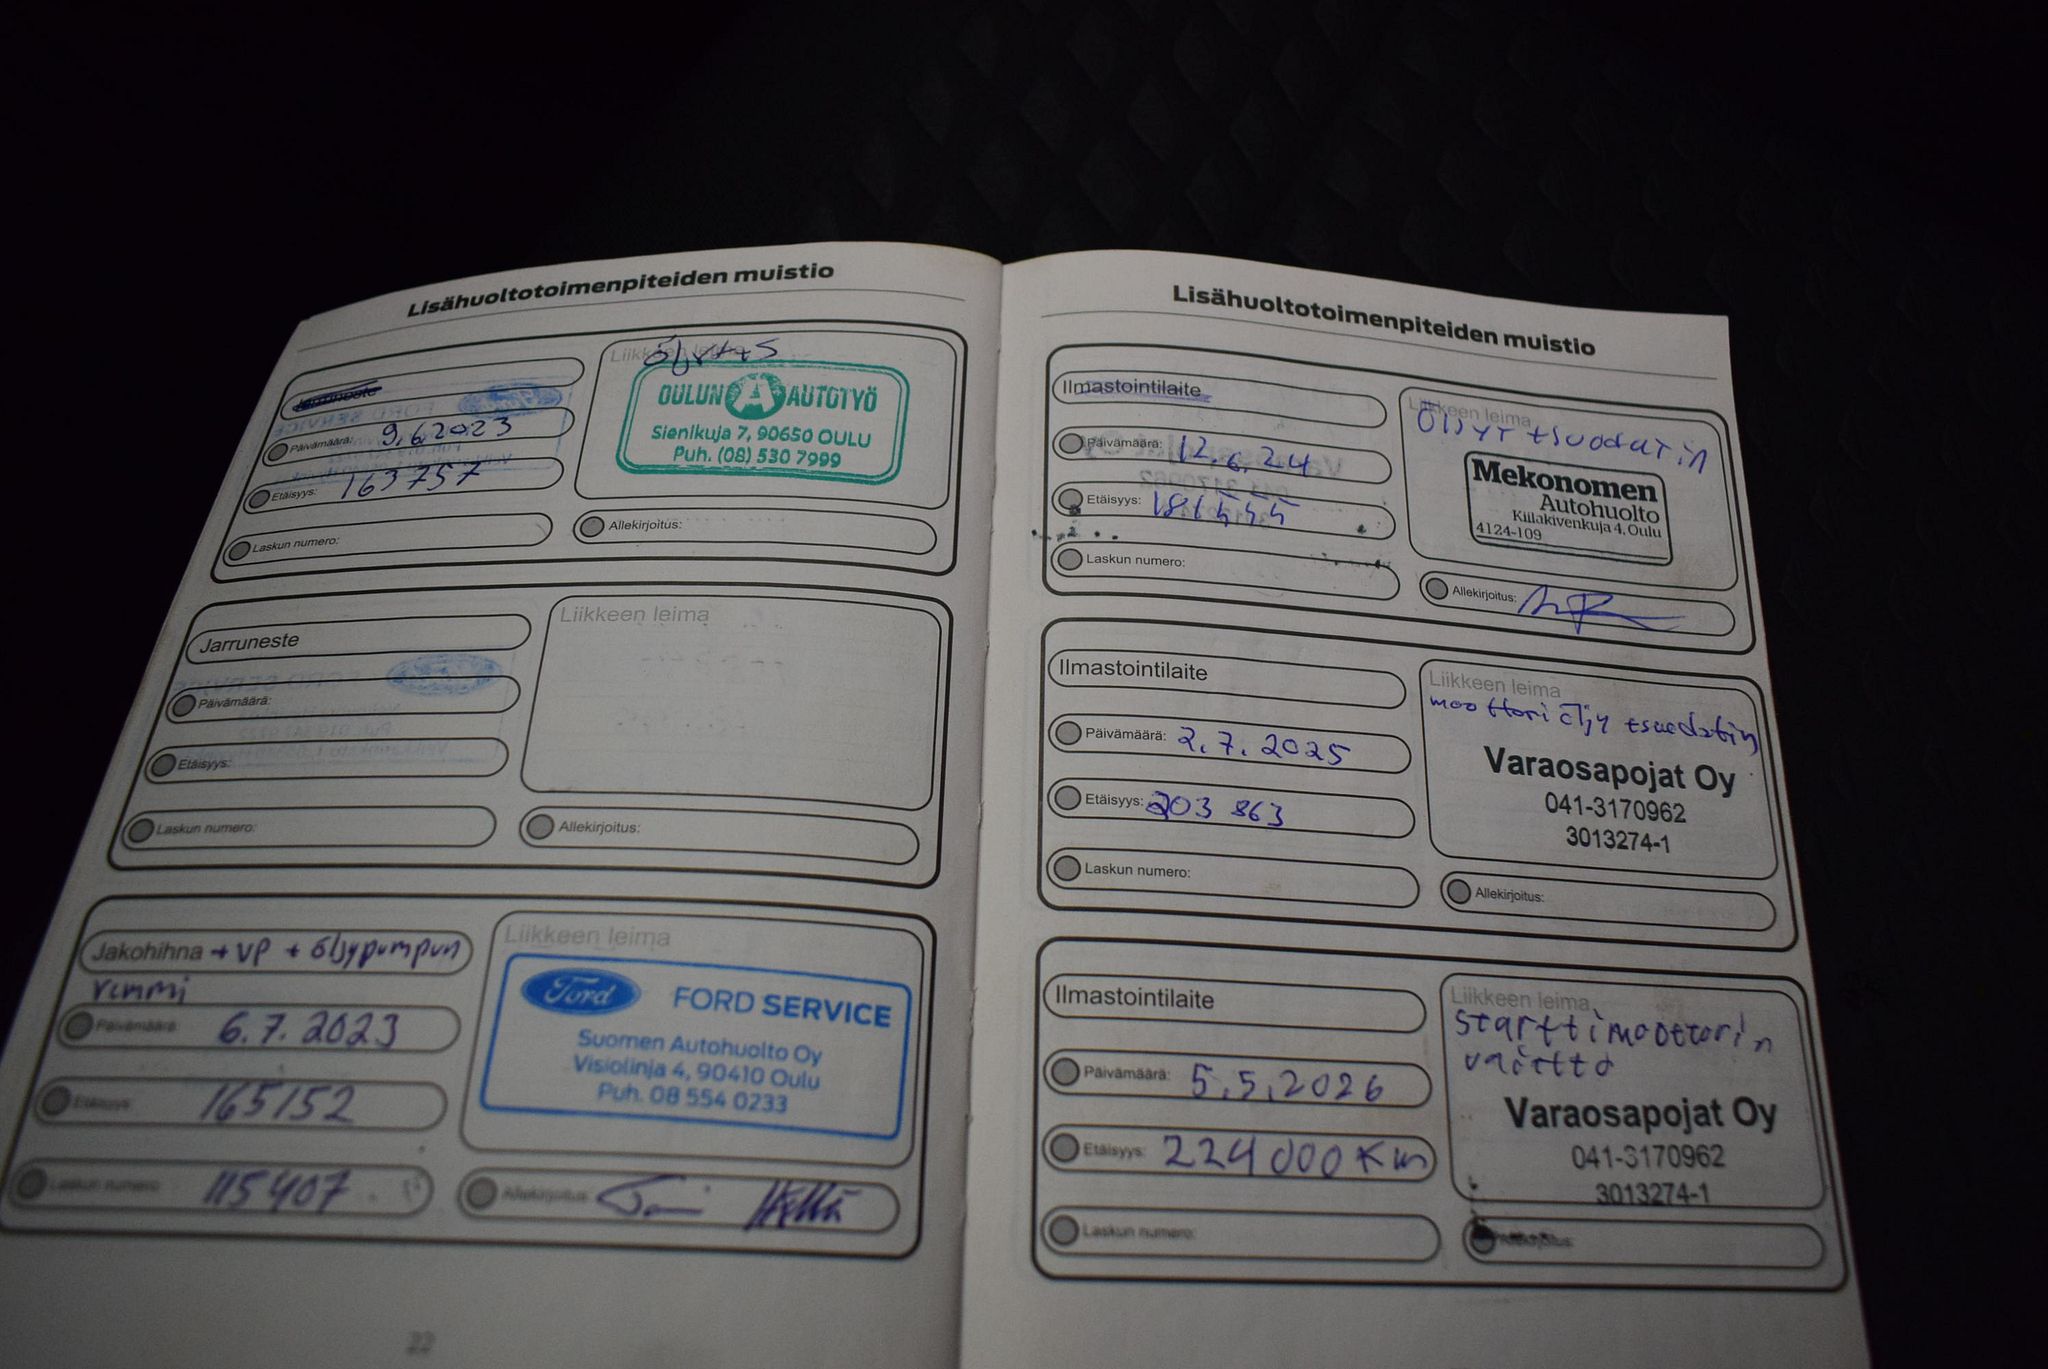 Lisähuoltotoimenpiteiden muistio
Jarruneste
Päivämäärä: 9.6.2023
Etäisyys: 163757
Laskun numero:
Liikkeen leima
OULUN A AUTOTYÖ
Sienikuja 7, 90650 OULU
Puh. (08) 530 7999
Allekirjoitus:
Jarruneste
Päivämäärä:
Etäisyys:
Laskun numero:
Liikkeen leima
Allekirjoitus:
Jakohihna + VP + öljypumpun
remmi
Päivämäärä: 6.7.2023
Etäisyys: 165152
Laskun numero: 115407
Liikkeen leima
Ford FORD SERVICE
Suomen Autohuolto Oy
Visiolinja 4, 90410 Oulu
Puh. 08 554 0233
Allekirjoitus:
22
Lisähuoltotoimenpiteiden muistio
Ilmastointilaite
Päivämäärä: 12.6.24
Etäisyys: 181555
Laskun numero:
Liikkeen leima
Öljyt + suodatin
Mekonomen
Autohuolto
Kiilakivenkuja 4, Oulu
4124-109
Allekirjoitus:
Ilmastointilaite
Päivämäärä: 2.7.2025
Etäisyys: 203 863
Laskun numero:
Liikkeen leima
moottoriöljy + suodatin
Varaosapojat Oy
041-3170962
3013274-1
Allekirjoitus:
Ilmastointilaite
Päivämäärä: 5.5.2026
Etäisyys: 224 000 Km
Laskun numero:
Liikkeen leima
starttimoottorin
vaihto
Varaosapojat Oy
041-3170962
3013274-1
Allekirjoitus: